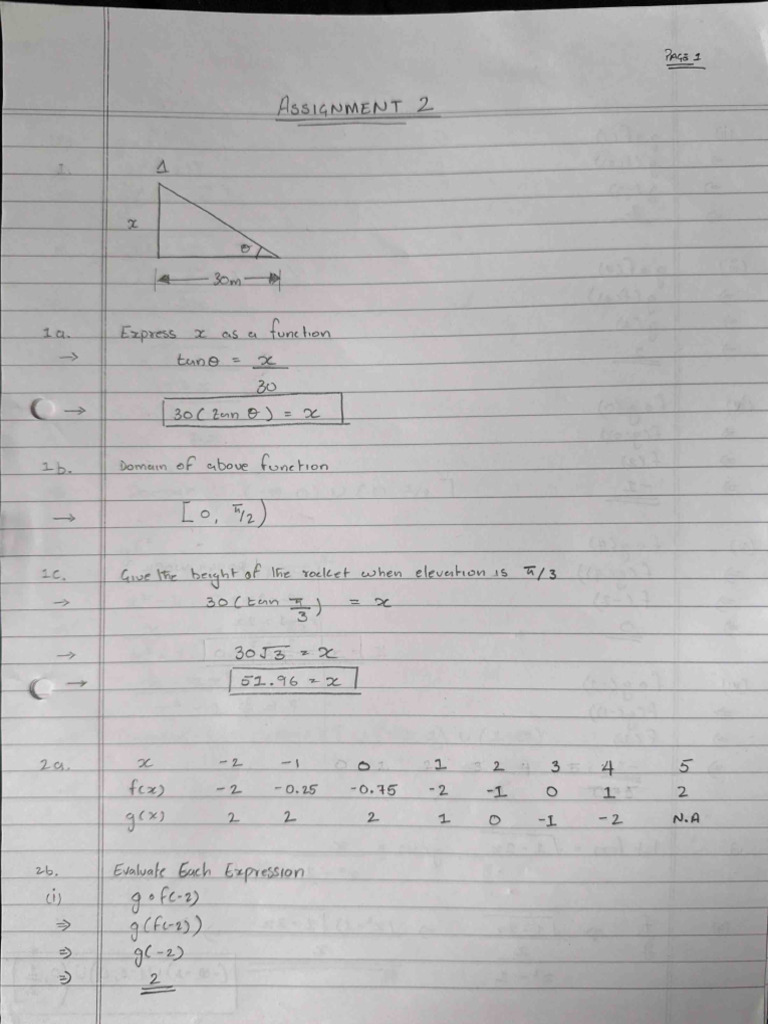 PAGE 1
ASSIGNMENT 2
1.
Δ
x
θ
30m
1a. Express x as a function
→ tanθ = x
30
→ 30(tan θ) = x
1b. Domain of above function
→ [0, π/2)
1c. Give the height of the rocket when elevation is π/3
→ 30(tan π/3) = x
→ 30√3 = x
→ 51.96 = x
2a. x -2 -1 0 1 2 3 4 5
f(x) -2 -0.25 -0.75 -2 -1 0 1 2
g(x) 2 2 2 1 0 -1 -2 N.A
2b. Evaluate Each Expression
(i) g∘f(-2)
⇒ g(f(-2))
⇒ g(-2)
⇒ 2